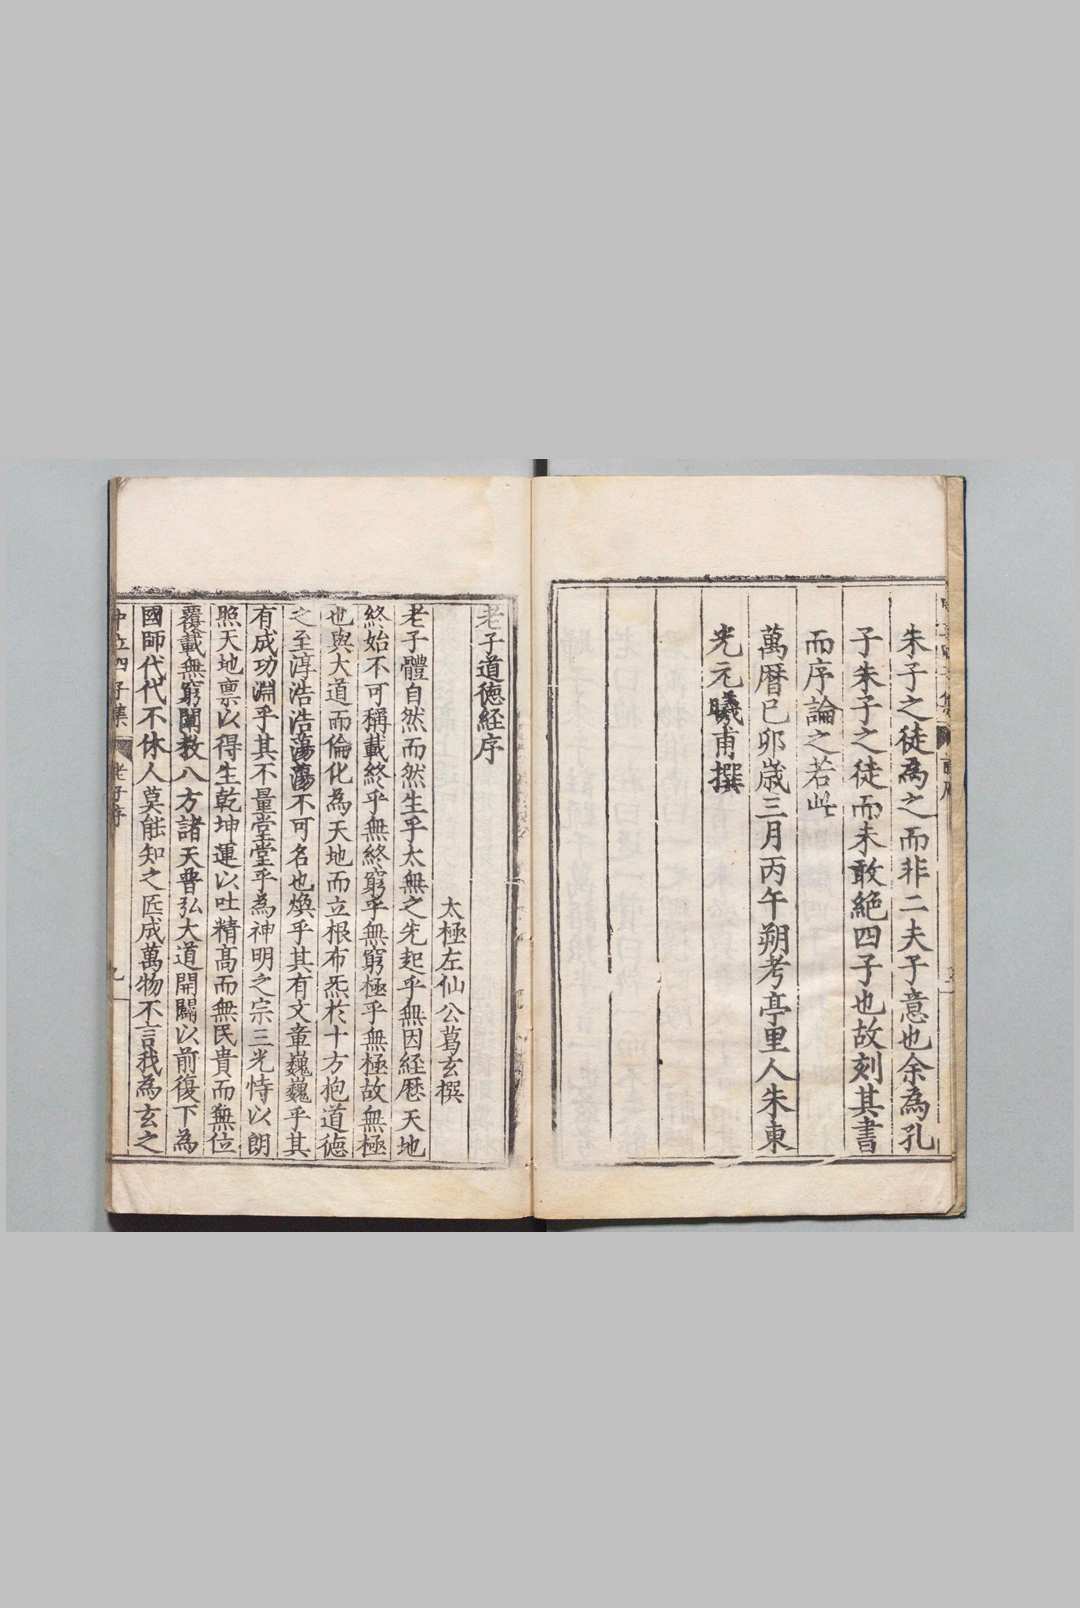 朱子之徒為之而非二夫子意也余為孔
子朱子之徒而未敢絶四子也故刻其書
而序論之若此
萬曆己卯歲三月丙午朔考亭里人朱東
光元曦甫撰
老子道德經序
太極左仙公葛玄撰
老子體自然而然生乎太無之先起乎無因経歷天地
終始不可稱載終乎無終窮乎無窮極乎無極故無極
也與大道而倫化為天地而立根布炁於十方抱道德
之至淳浩浩蕩蕩不可名也煥乎其有文章巍巍乎其
有成功淵乎其不量堂堂乎為神明之宗三光恃以朗
照天地禀以得生乾坤運以吐精高而無民貴而無位
覆載無窮闡教八方諸天普弘大道開闢以前復下為
國師代代不休人莫能知之匠成萬物不言我為玄之
中立四子集
老子序
九